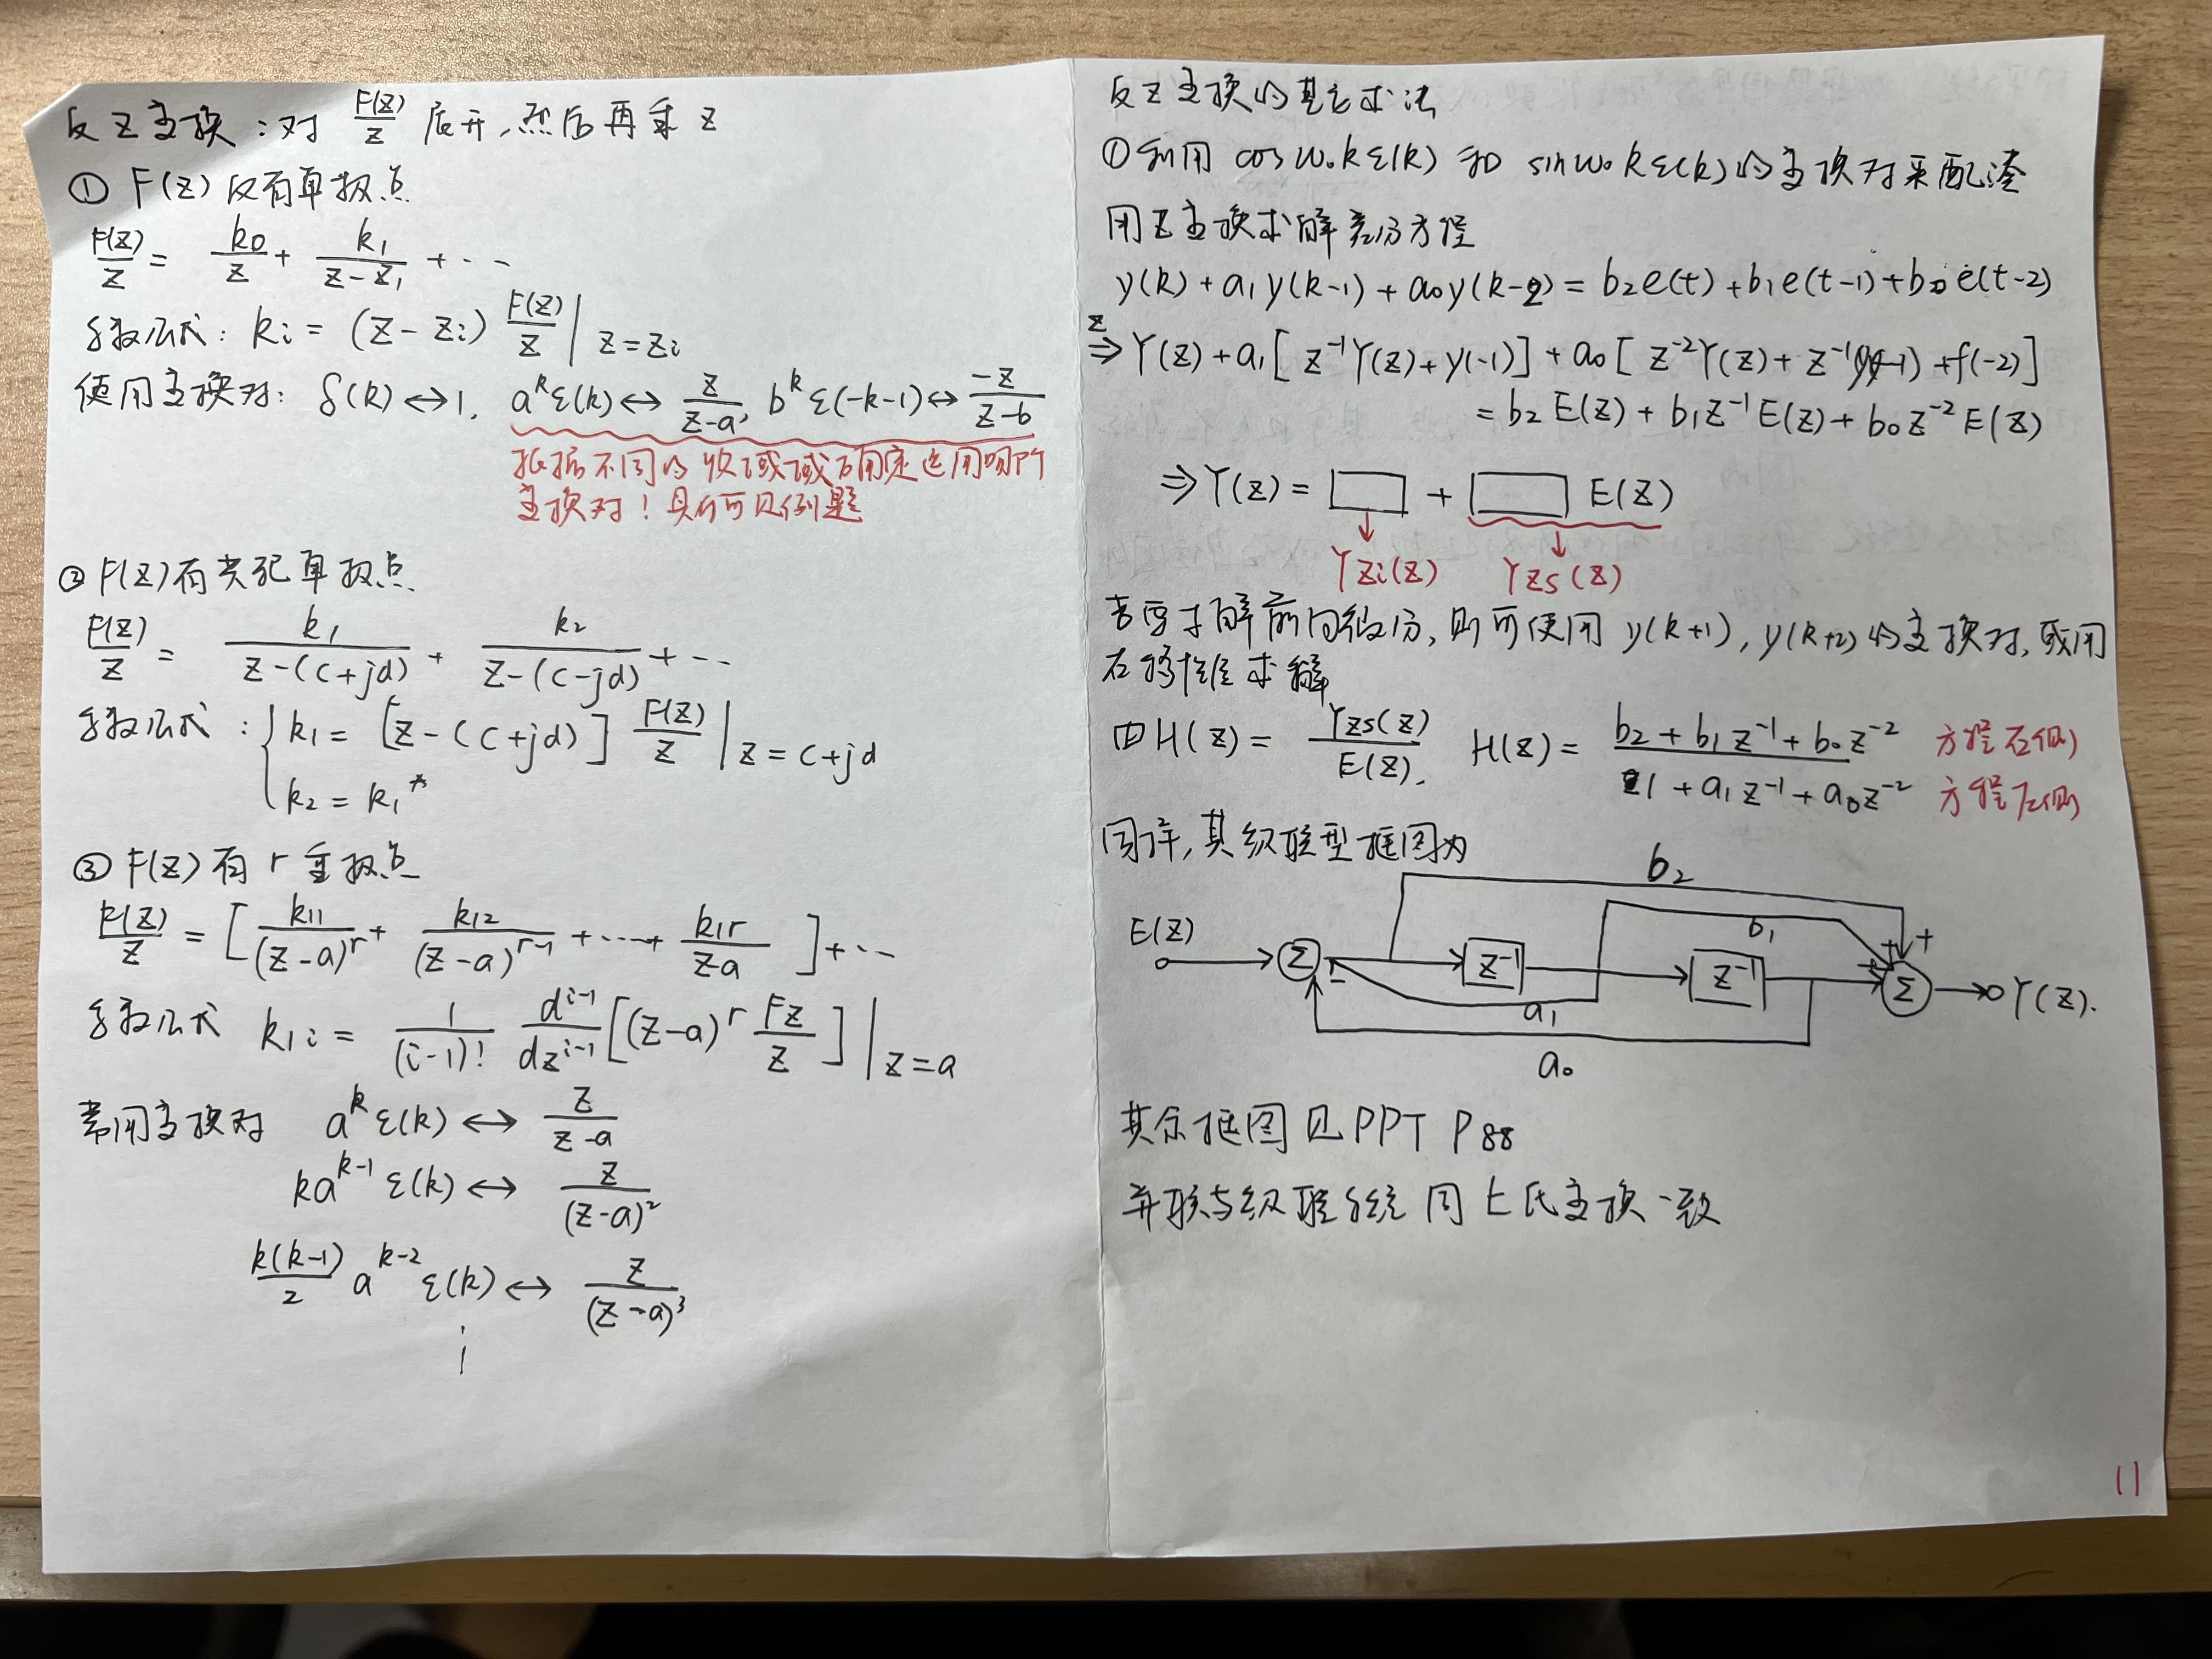 反Z变换：对 F(Z)/Z 展开，然后再乘 Z
① F(Z) 仅有单极点
F(Z)/Z = k0/Z + k1/(Z-Z1) + ...
系数公式：ki = (Z-Zi) F(Z)/Z | Z=Zi
使用变换对：δ(k)↔1, a^k ε(k)↔ Z/(Z-a), b^k ε(-k-1)↔ -Z/(Z-b)
根据不同的收敛域去确定选用哪个
变换对！具体可见例题
② F(Z)有共轭单极点
F(Z)/Z = k1/(Z-(c+jd)) + k2/(Z-(c-jd)) + ...
系数公式：{ k1 = [Z-(c+jd)] F(Z)/Z | Z=c+jd
k2 = k1*
③ F(Z)有 r 重极点
F(Z)/Z = [ k11/(Z-a)^r + k12/(Z-a)^(r-1) + ... + k1r/(Z-a) ] + ...
系数公式 k1i = 1/(i-1)! d^(i-1)/dz^(i-1) [(Z-a)^r FZ/Z] | Z=a
常用变换对 a^k ε(k) ↔ Z/(Z-a)
ka^(k-1) ε(k) ↔ Z/(Z-a)^2
k(k-1)/2 a^(k-2) ε(k) ↔ Z/(Z-a)^3
⋮
反Z变换的其它求法
① 利用 cosω0kε(k) 和 sinω0kε(k)的变换对来配凑
用Z变换求解差分方程
y(k)+a1y(k-1)+a0y(k-2)=b2e(t)+b1e(t-1)+b0e(t-2)
Z⇒ Y(Z)+a1[Z^-1Y(Z)+y(-1)]+a0[Z^-2Y(Z)+Z^-1y(-1)+f(-2)]
=b2E(Z)+b1Z^-1E(Z)+b0Z^-2E(Z)
⇒Y(Z)= □ + □ E(Z)
Yzi(Z) Yzs(Z)
若要求解前向微分，则可使用 y(k+1), y(k+2)的变换对，或用
右移性质求解
由H(Z)= Yzs(Z)/E(Z). H(Z)= (b2+b1Z^-1+b0Z^-2)/(1+a1Z^-1+a0Z^-2) 方程右侧
方程左侧
同样，其级联型框图为
b2
E(Z) Σ - Z^-1 Z^-1 b1 + + + Σ Y(Z).
a1
a0
其余框图见PPT P88
并联与级联系统同上氏变换一致
11